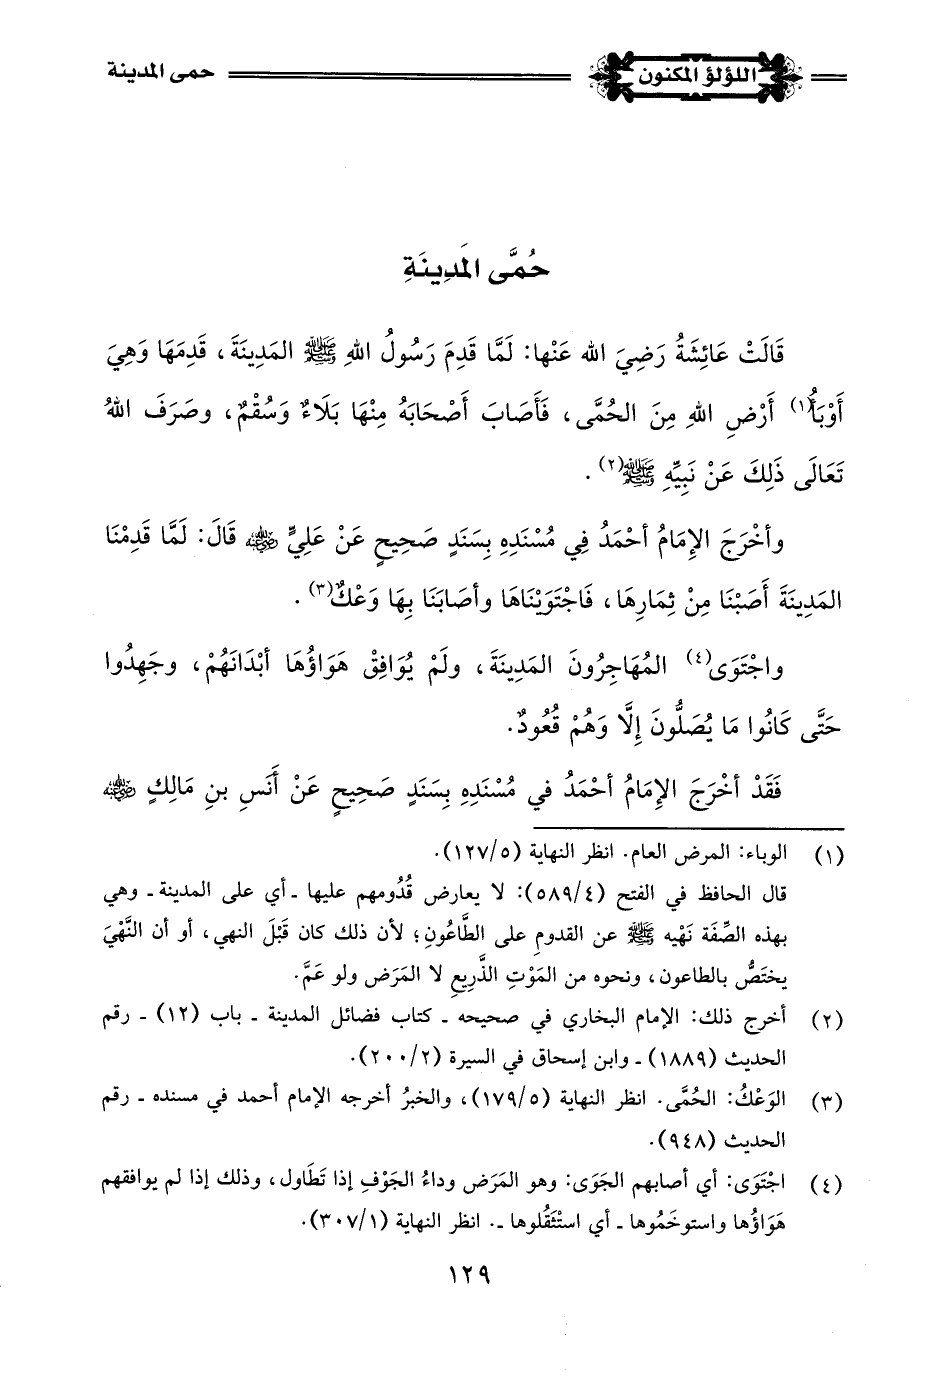 اللؤلؤ المكنون
حمى المدينة
حُمَّى المَدِينَةِ
قَالَتْ عَائِشَةُ رَضِيَ الله عَنْها: لَمَّا قَدِمَ رَسُولُ اللهِ ﷺ المَدِينَةَ، قَدِمَهَا وَهِيَ
أَوْبَأُ(١) أَرْضِ اللهِ مِنَ الحُمَّى، فَأَصَابَ أَصْحَابَهُ مِنْهَا بَلَاءٌ وَسُقْمٌ، وصَرَفَ اللهُ
تَعَالَى ذَلِكَ عَنْ نَبِيِّهِ ﷺ(٢).
وأخْرَجَ الإِمَامُ أحْمَدُ فِي مُسْنَدِهِ بِسَنَدٍ صَحِيحٍ عَنْ عَلِيٍّ رضي الله عنه قَالَ: لَمَّا قَدِمْنَا
المَدِينَةَ أَصَبْنَا مِنْ ثِمَارِهَا، فَاجْتَوَيْنَاهَا وأصَابَنَا بِهَا وَعْكٌ(٣).
واجْتَوَى(٤) المُهَاجِرُونَ المَدِينَةَ، ولَمْ يُوَافِقْ هَوَاؤُهَا أبْدَانَهُمْ، وجَهِدُوا
حَتَّى كَانُوا مَا يُصَلُّونَ إِلَّا وَهُمْ قُعُودٌ.
فَقَدْ أخْرَجَ الإِمَامُ أحْمَدُ في مُسْنَدِهِ بِسَنَدٍ صَحِيحٍ عَنْ أَنَسِ بنِ مَالِكٍ رضي الله عنه
(١) الوباء: المرض العام. انظر النهاية (١٢٧/٥).
قال الحافظ في الفتح (٥٨٩/٤): لا يعارض قُدُومهم عليها ـ أي على المدينة ـ وهي
بهذه الصِّفَة نَهْيه ﷺ عن القدومِ على الطَّاعُونِ؛ لأن ذلك كان قَبْلَ النهي، أو أن النَّهْيَ
يختَصُّ بالطاعون، ونحوه من المَوْتِ الذَّرِيعِ لا المَرَض ولو عَمَّ.
(٢) أخرج ذلك: الإمام البخاري في صحيحه ـ كتاب فضائل المدينة ـ باب (١٢) ـ رقم
الحديث (١٨٨٩) ـ وابن إسحاق في السيرة (٢٠٠/٢).
(٣) الوَعْكُ: الحُمَّى. انظر النهاية (١٧٩/٥)، والخبرُ أخرجه الإمام أحمد في مسنده ـ رقم
الحديث (٩٤٨).
(٤) اجْتَوَى: أي أصابهم الجَوَى: وهو المَرَض وداءُ الجَوْفِ إذا تَطَاول، وذلك إذا لم يوافقهم
هَوَاؤُها واستوخَمُوها ـ أي استْثَقُلوها ـ. انظر النهاية (٣٠٧/١).
١٢٩